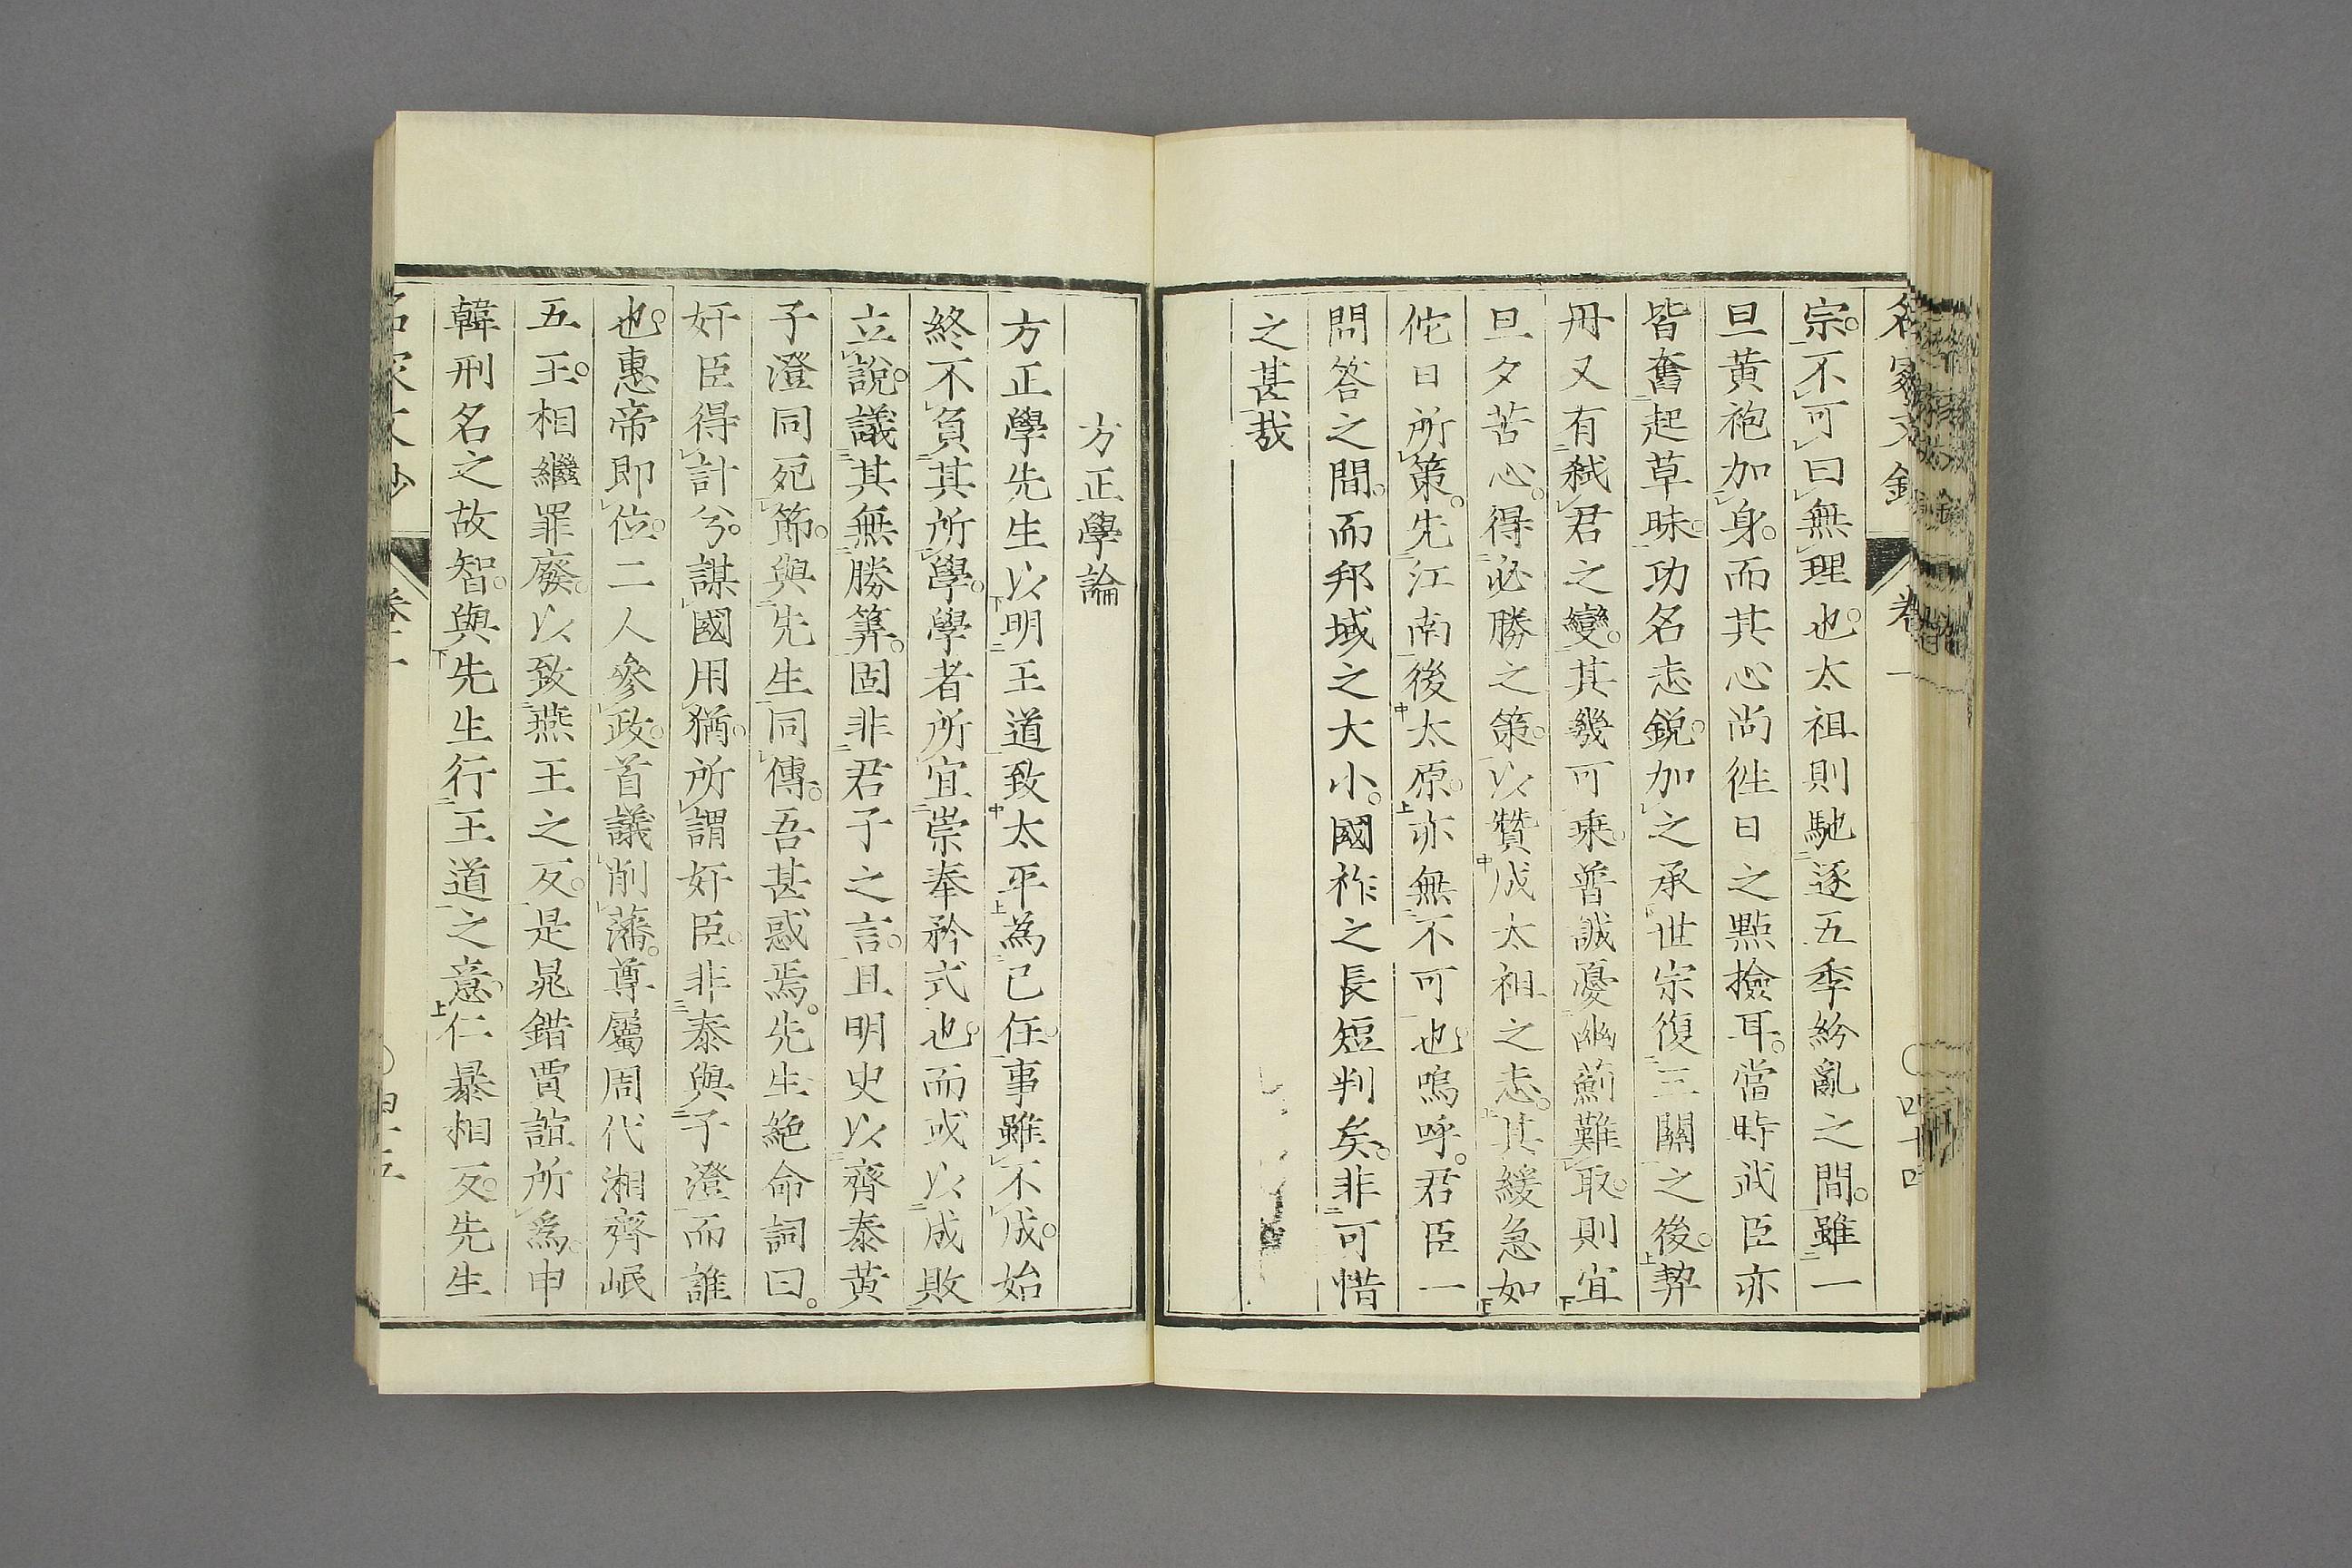 名家文鈔 卷一 〇 四十四
宗。不可曰無理也。太祖則馳逐五季紛亂之間。雖一
旦黄袍加身。而其心尚徃日之點撿耳。當時武臣亦
皆奮起草昧。功名志銳。加之承世宗復三關之後。契
丹又有弑君之變。其幾可乘。普誠憂幽薊難取。則宜
旦夕苦心。得必勝之策。以贊成太祖之志。其緩急如
佗日所策。先江南後太原。亦無不可也。嗚呼。君臣一
問答之間。而邦域之大小。國祚之長短判矣。非可惜
之甚哉
方正學論
方正學先生以明王道致太平為己任。事雖不成。始
終不負其所學。學者所宜崇奉矜式也。而或以成敗
立說。議其無勝筭。固非君子之言。且明史以齊泰黄
子澄同死節。與先生同傳。吾甚惑焉。先生絶命詞曰。
奸臣得計兮。謀國用猶。所謂奸臣。非泰與子澄而誰
也。惠帝即位。二人參政。首議削藩。尊屬周代湘齊岷
五王。相繼罪廢。以致燕王之反。是晁錯賈誼所為。申
韓刑名之故智。與先生行王道之意。仁暴相反。先生